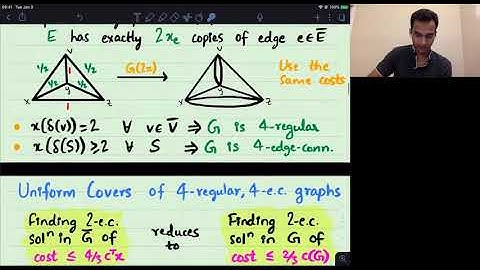 09:41 Tue Jan 5
E has exactly 2xₑ copies of edge e∈E̅
v
1/2
1/2
G(2x)
Use the same costs
1/2
1/2
1
y
x
z
v
y
x
z
• x(δ(v)) = 2 ∀ v∈V̅ ⇒ G is 4-regular
• x(δ(S)) ≥ 2 ∀ S ⇒ G is 4-edge-conn.
Uniform Covers of 4-regular, 4-e.c. graphs
Finding 2-e.c.
solⁿ in G̅ of
cost ≤ 4/3 cᵀx
reduces
to
Finding 2-e.c.
solⁿ in G of
cost ≤ 2/3 c(G)